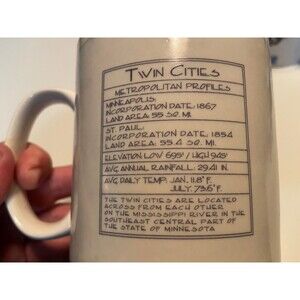 TWIN CITIES
METROPOLITAN PROFILES
MINNEAPOLIS:
INCORPORATION DATE: 1867
LAND AREA: 55 SQ. MI.
ST. PAUL:
INCORPORATION DATE: 1854
LAND AREA: 55.4 SQ. MI.
ELEVATION LOW 695' / HIGH 945'
AVG ANNUAL RAINFALL: 29.41 IN.
AVG DAILY TEMP: JAN. 11.8° F.
JULY: 73.6° F.
THE TWIN CITIES ARE LOCATED
ACROSS FROM EACH OTHER
ON THE MISSISSIPPI RIVER IN THE
SOUTHEAST CENTRAL PART OF
THE STATE OF MINNESOTA